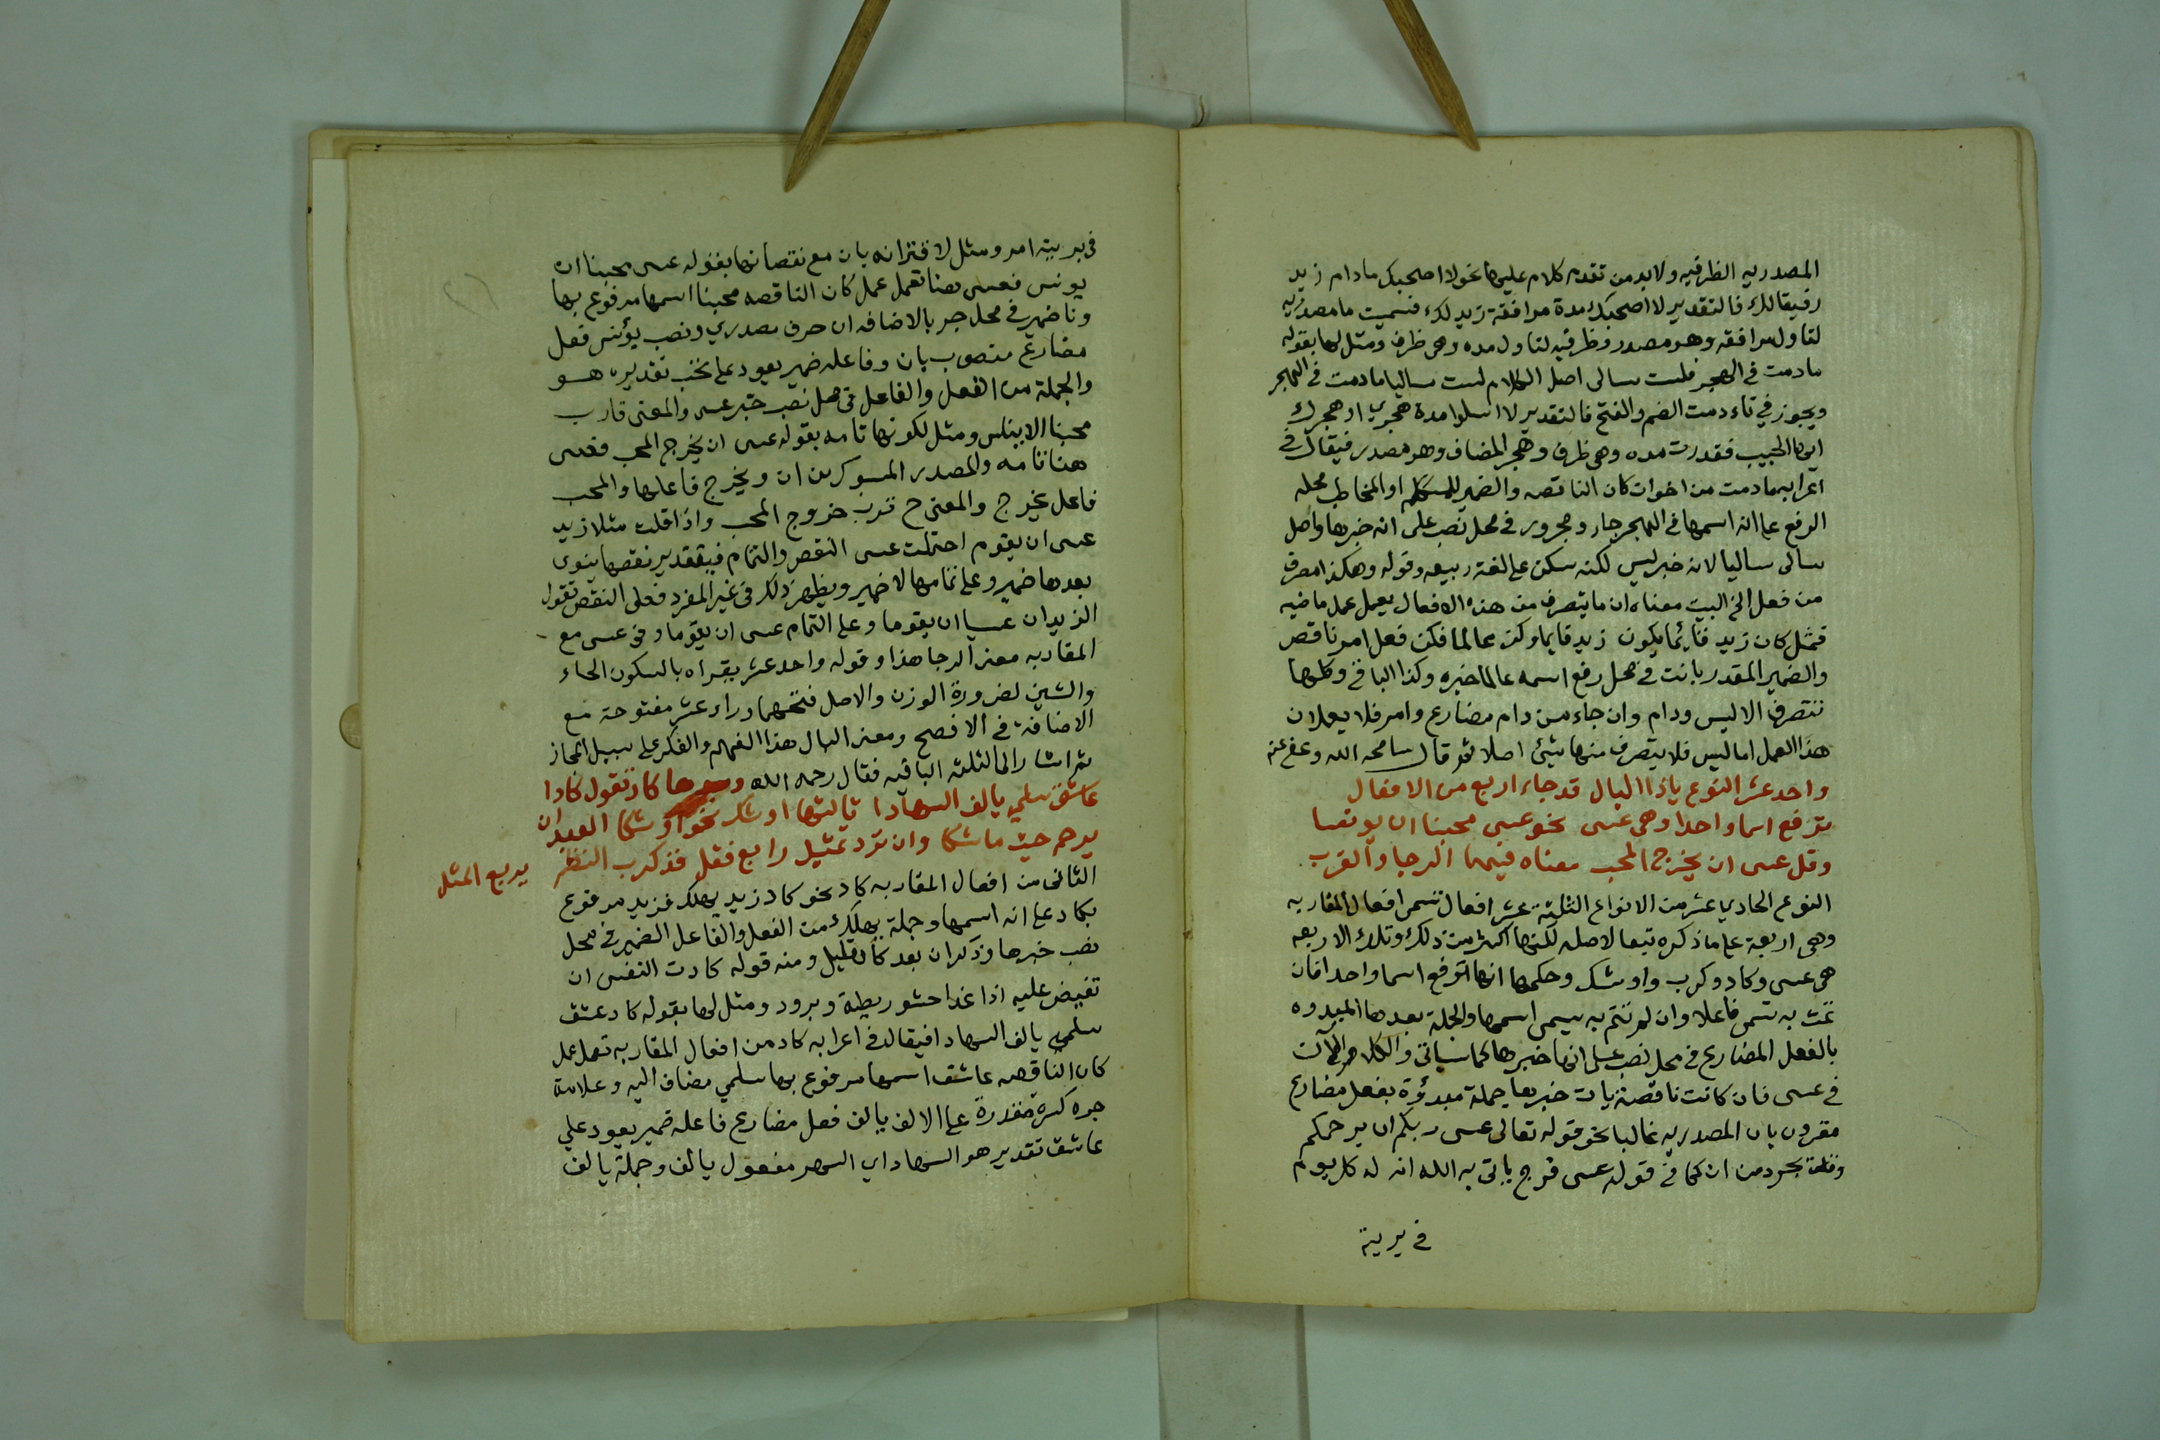 المصدريه الظرفيه ولابد من تقدم كلام عليها نحو لا اصحبك مادام زيد
رفيقا لك فالتقدير لا اصحبك مدة مرافقة زيد لك فسميت ما مصدريه
لتاول مرافقه وهو مصدر وظرفيه لتاول مده وهي ظرف ومثل لها بقوله
مادمت في الهجر فلست سالى اصل الكلام لست ساليا مادمت في الهجر
ويجوز في تاء دمت الضم والفتح فالتقدير لا اسلوا مدة هجري او هجرك
ايها الحبيب فقدرت مده وهي ظرف وهجر المضاف وهو مصدر فيقال في
اعرابه مادمت من اخوات كان الناقصه والضمير للمتكلم او المخاطب محله
الرفع على انه اسمها في الهجر جار ومجرور في محل نصب على انه خبرها واصل
سالى ساليا لانه خبر ليس لكنه سكن على لغة ربيعه وقوله وهكذا مصرف
من فعل الخ البيت معناه ان ما يتصرف من هذه الافعال يعمل عمل ماضيه
فمثل كان زيد قائما يكون زيد قايما وكن عالما فكن فعل امر ناقص
والضمير المقدر بانت في محل رفع اسمه عالما خبره وكذا الباقي وكلها
تتصرف الا ليس ودام وان جاء من دام مضارع وامر فلا يعملان
هذا العمل اما ليس فلا يتصرف منها شئ اصلا ثم قال سامحه الله وعفى عنه
واحد عشر النوع ياذا البال قد جاء اربع من الافعال
ترفع اسما واحدا وهي عسى نحو عسى محبنا ان يونسا
وقل عسى ان يخرج المحب معناه فيهما الرجا والقرب
النوع الحادي عشر من الانواع الثلثة عشر افعال تسمى افعال المقاربه
وهي اربعة على ما ذكره تبعا لاصله لكنها اكثر من ذلك وتلك الاربعه
هي عسى وكاد وكرب واوشك وحكمها انها ترفع اسما واحدا فان
تمت به تسمى فاعلا وان لم تتم به يسمى اسمها والجملة بعدها المبدوه
بالفعل المضارع في محل نصب على انها خبرها كما سياتى والكلام الآن
في عسى فان كانت ناقصة يات خبرها جملة مبدؤة بفعل مضارع
مقرون بان المصدريه غالبا نحو قوله تعالى عسى ربكم ان يرحمكم
وقلة بجرد من ان كما في قوله عسى فرج ياتى به الله انه له كل يوم
في بريته
في بريته امر ومثل لاقترانه بان مع نقصانها بقوله عسى محبنا ان
يونس فعسى هنا تعمل عمل كان الناقصه محبنا اسمها مرفوع بها
ونا ضمير في محل جر بالاضافه ان حرف مصدري ونصب يؤنس فعل
مضارع منصوب بان وفاعله ضمير يعود على محب تقديره هو
والجملة من الفعل والفاعل في محل نصب خبر عسى والمعنى قارب
محبنا الايناس ومثل لكونها تامه بقوله عسى ان يخرج المحب فعسى
هنا تامه والمصدر المسبوك من ان ويخرج فاعلها والمحب
فاعل يخرج والمعنى ح قرب خروج المحب واذا قلت مثلا زيد
عسى ان يقوم احتملت عسى النقص والتمام فبتقدير نقصها ينوى
بعدها ضمير وعلى تمامها لا ضمير ويظهر ذلك في غير المفرد فعلى النقص تقول
الزيدان عسيا ان يقوما وعلى التمام عسى ان يقوما وفى عسى مع
المقاربه معنى الرجا هذا وقوله واحد عشر يقراه بالسكون الحاء
والشين لضرورة الوزن والاصل فتحهما وراء عشر مفتوحة مع
الاضافة في الافصح ومعنى البال هذا الفهم والفكر على سبيل المجاز
ثم اشار الى الثلثه الباقيه فقال رحمه الله كاد تقول كادا
عاشق سلمي يالف السهادا ثالثها اوشك نحو اوشكا العبد ان
يرحم حيث ما شكا وان ترد تمثيل رابع فقل قد كرب النظم يربع المثل
الثانى من افعال المقاربه كاد نحو كاد زيد يهلك فزيد مرفوع
بكاد على انه اسمها وجملة يهلك من الفعل والفاعل الضمير في محل
نصب خبرها وذكر ان بعد كاد قليل ومنه قوله كادت النفس ان
تفيض عليه اذا غدا حشو ريطة وبرود ومثل لها بقوله كاد عشق
سلمي يالف السهادا فيقال في اعرابه كاد من افعال المقاربه تعمل عمل
كان الناقصه عاشق اسمها مرفوع بها سلمي مضاف اليه وعلامة
جره كسرة مقدرة على الالف يالف فعل مضارع فاعله ضمير يعود علي
عاشق تقديره هو السهاد اي السهر مفعول يالف وجملة يالف